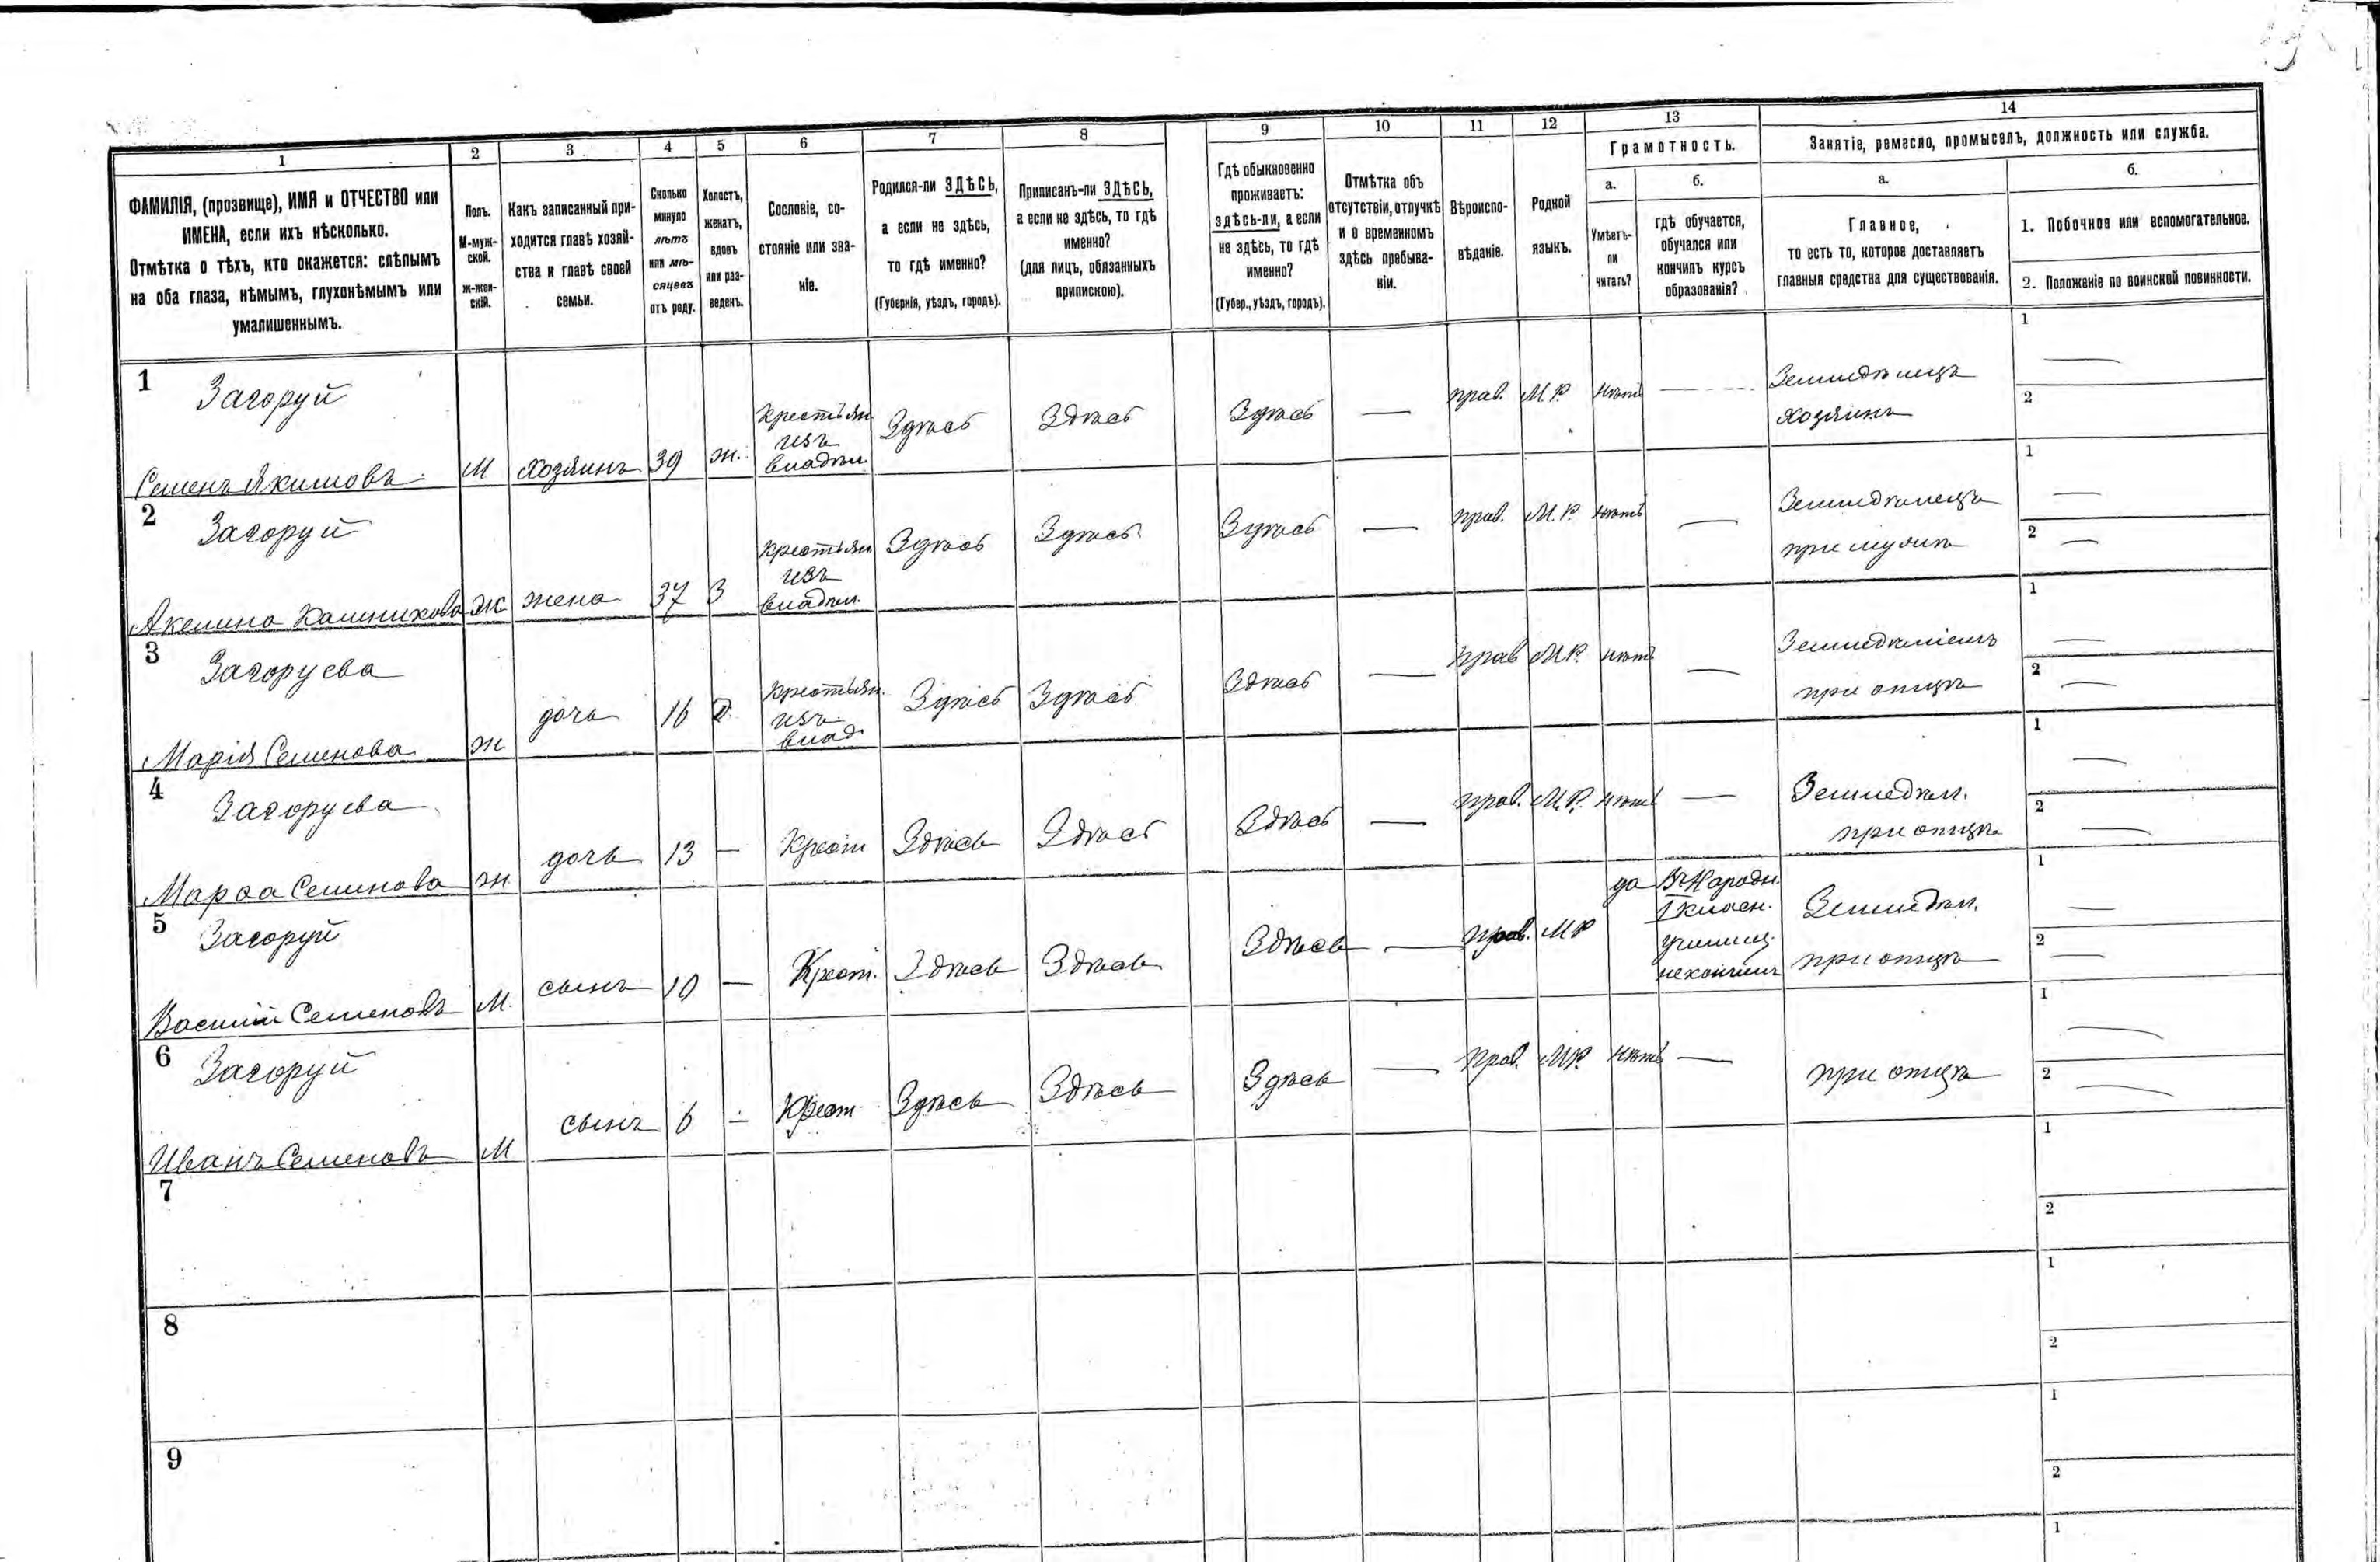 1 2 3 4 5 6 7 8 9 10 11 12 13 14
ФАМИЛІЯ, (прозвище), ИМЯ и ОТЧЕСТВО или
ИМЕНА, если ихъ нѣсколько.
Отмѣтка о тѣхъ, кто окажется: слѣпымъ
на оба глаза, нѣмымъ, глухонѣмымъ или
умалишеннымъ.
Полъ.
М-муж-
ской.
ж-жен-
скій.
Какъ записанный при-
ходится главѣ хозяй-
ства и главѣ своей
семьи.
Сколько
минуло
лѣтъ
или мѣ-
сяцевъ
отъ роду.
Холостъ,
женатъ,
вдовъ
или раз-
веденъ.
Сословіе, со-
стояніе или зва-
ніе.
Родился-ли ЗДѢСЬ,
а если не здѣсь,
то гдѣ именно?
(Губернія, уѣздъ, городъ).
Приписанъ-ли ЗДѢСЬ,
а если не здѣсь, то гдѣ
именно?
(для лицъ, обязанныхъ
припискою).
Гдѣ обыкновенно
проживаетъ:
здѣсь-ли, а если
не здѣсь, то гдѣ
именно?
(Губер., уѣздъ, городъ).
Отмѣтка объ
отсутствіи, отлучкѣ
и о временномъ
здѣсь пребыва-
ніи.
Вѣроиспо-
вѣданіе.
Родной
языкъ.
Грамотность.
а.
Умѣетъ-
ли
читать?
б.
гдѣ обучается,
обучался или
кончилъ курсъ
образованія?
Занятіе, ремесло, промыселъ, должность или служба.
а.
Главное,
то есть то, которое доставляетъ
главныя средства для существованія.
б.
1. Побочное или вспомогательное.
2. Положеніе по воинской повинности.
1
Загоруй
Семенъ Якимовъ
М
Хозяинъ
39
ж.
крестьян
изъ
владѣл
Здѣсь
Здѣсь
Здѣсь
—
прав.
М.Р.
нѣтъ
—
Земледѣлецъ
хозяинъ
1 —
2
2
Загоруй
Акелина Калникова
Ж
жена
37
З
крестьян
изъ
владѣл.
Здѣсь
Здѣсь
Здѣсь
—
прав.
М.Р.
нѣтъ
—
Земледѣлецъ
при мужѣ
1 —
2 —
3
Загоруева
Марія Семенова
ж
дочь
16
Д.
крестьян.
изъ
влад.
Здѣсь
Здѣсь
Здѣсь
—
прав
М.Р.
нѣтъ
—
Земледѣліемъ
при отцѣ
1 —
2 —
4
Загоруева
Марѳа Семенова
ж
дочь
13
—
Крест
Здѣсь
Здѣсь
Здѣсь
—
прав.
М.Р.
нѣтъ
—
Земледѣл.
при отцѣ
1 —
2 —
5
Загоруй
Василій Семеновъ
М.
сынъ
10
—
Крест.
Здѣсь
Здѣсь
Здѣсь
—
прав.
М Р
да
Въ Народн.
1 класн.
училищ.
некончилъ
Земледѣл.
при отцѣ
1 —
2 —
6
Загоруй
Иванъ Семеновъ
М
сынъ
6
—
Крест
Здѣсь
Здѣсь
Здѣсь
—
прав.
М.Р.
нѣтъ
—
при отцѣ
1 —
2 —
7
1
2
8
1
2
9
1
2
1